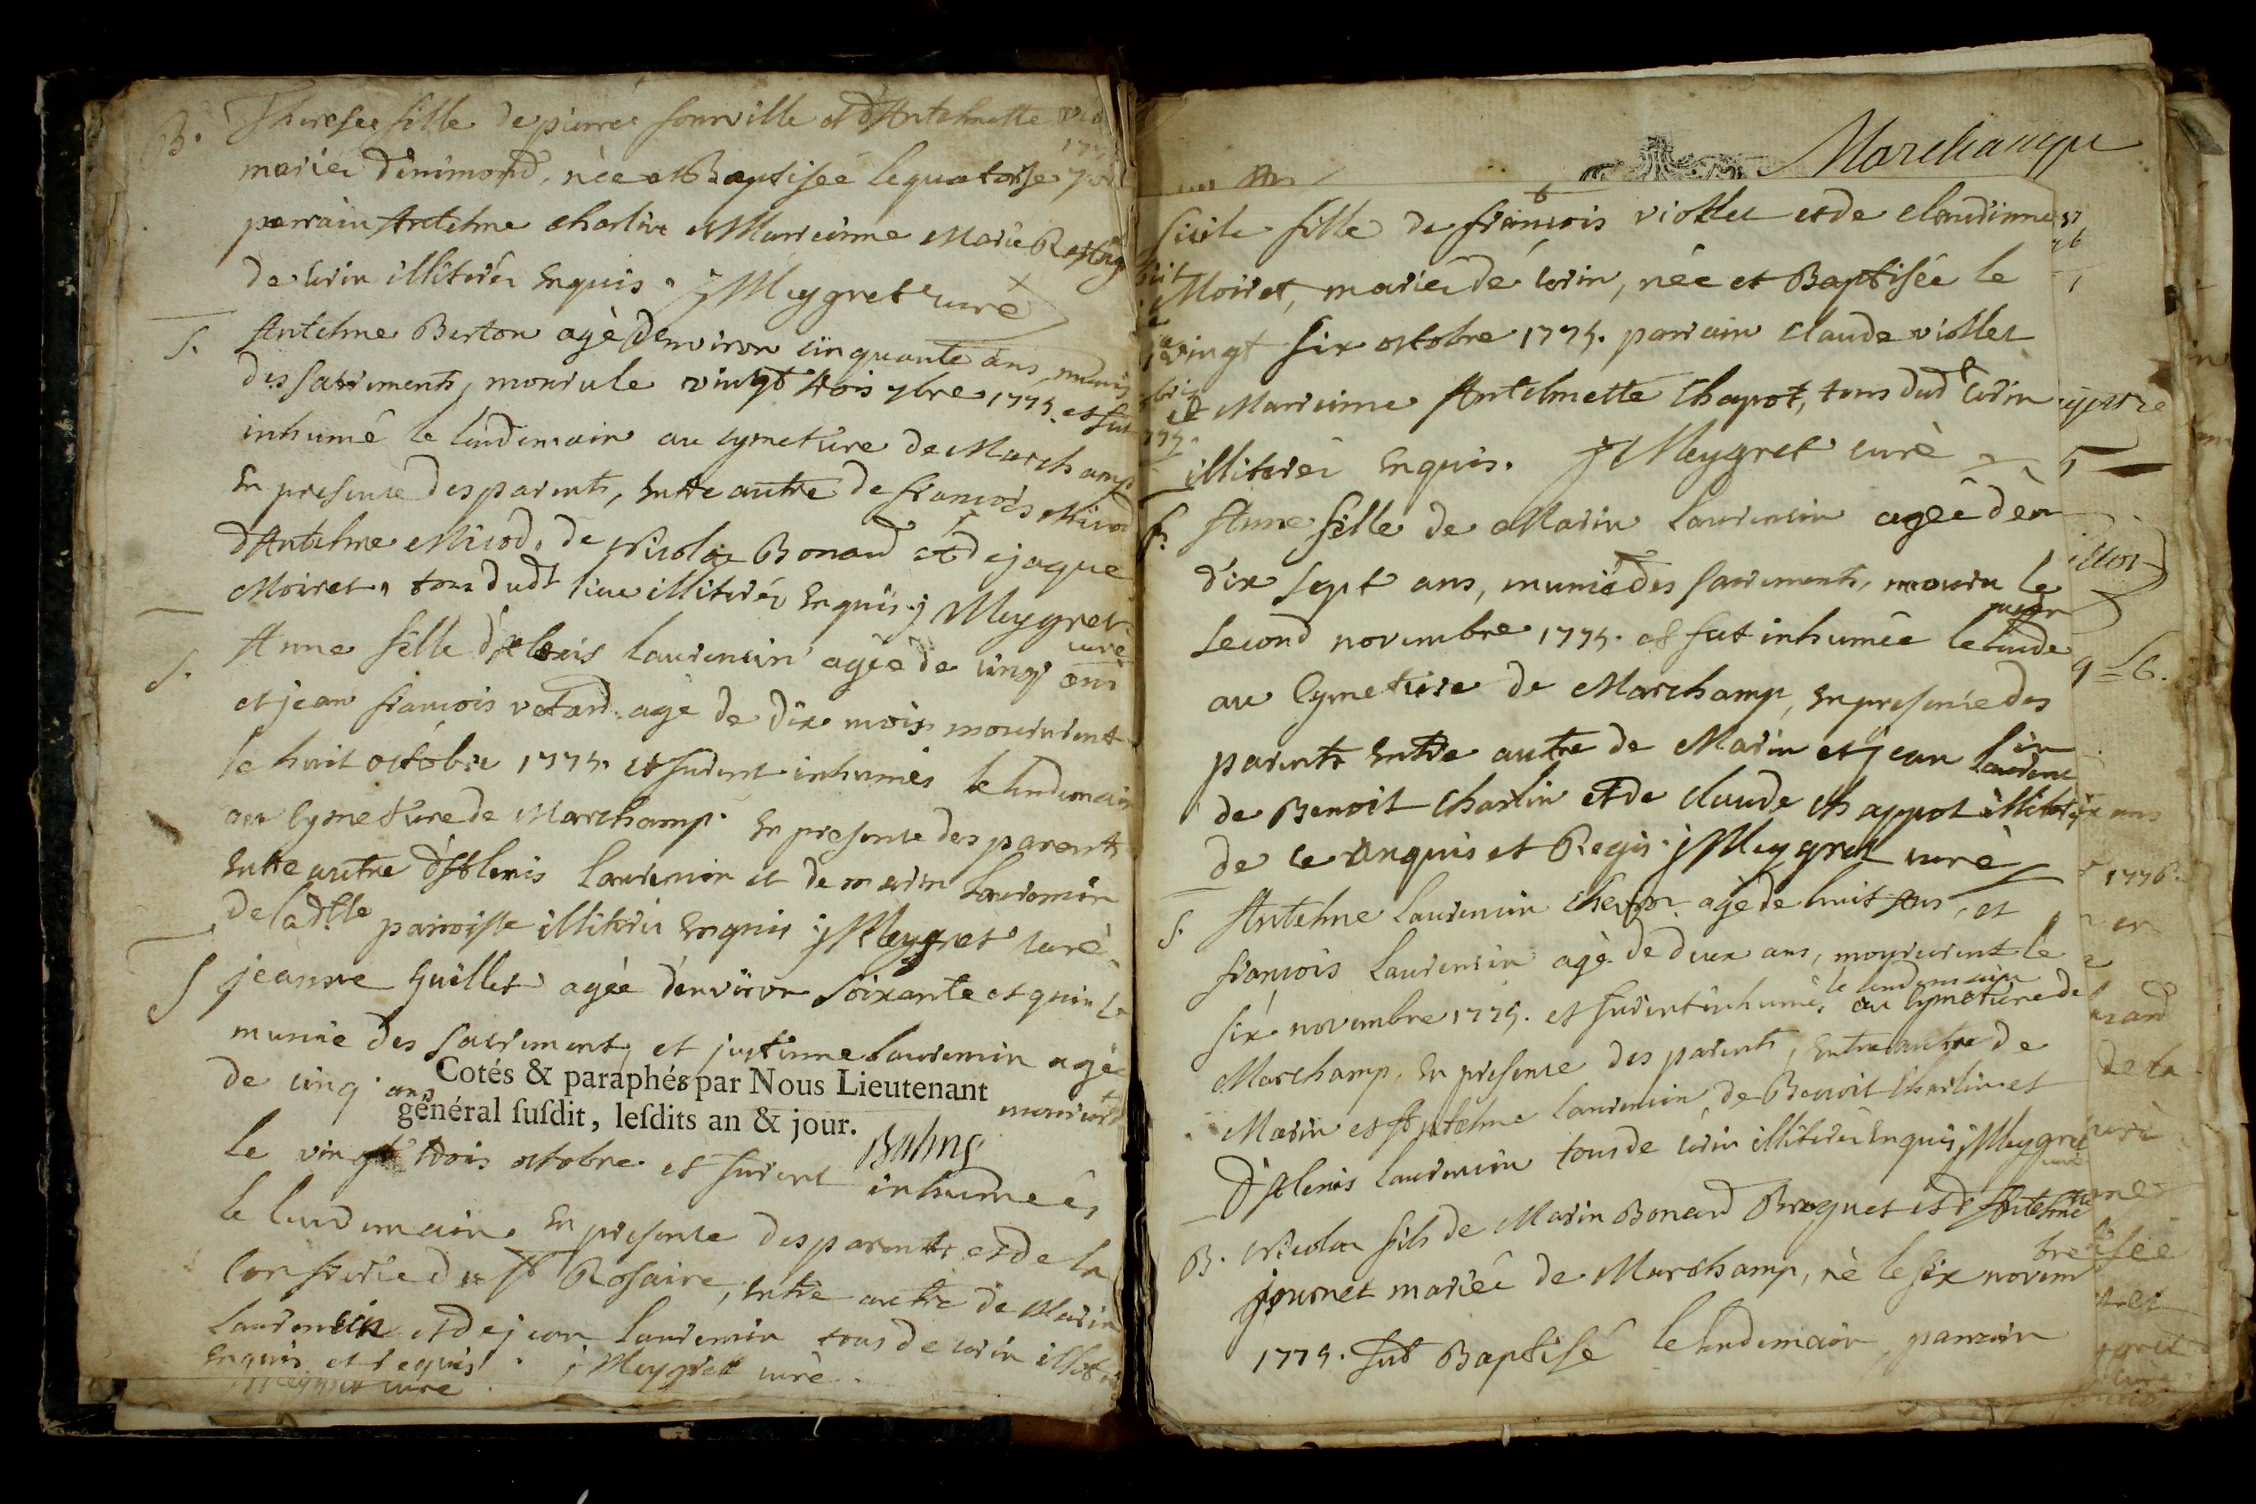 B. Therese fille de pierre sourville et d'Antelmette
mariés d'inimond, née et Baptisée le quatorse 7bre
parrain Antelme charlin et Marreinne Marie
de cerin illiterés enquis. j Meygret curé
S. Antelme Berton agé d'environ cinquante ans, munis
des sacrements, mouru le vingt trois 7bre 1775. et fut
inhumé le lendemain au cymetiere de Marchamp
En presence des parents, entre autre de francois Micod
d'Antelme Micod, de Nicolas Bonard et de jaque
Moiret, tous dudt lieu illiterés enquis. j Meygret
curé
S. Anne fille d'Alexis laurencin agée de cinq ans
et jean francois vetard agé de dix mois moururent
le huit octobre 1775. et furent inhumés le lendemain
au Cymetiere de Marchamp. En presence des parents
entre autre d'Alexis laurencin et de marin laurencin
de ladtte parroisse illiterés enquis j Meygret curé.
S jeanne Guillet agée d'environ soixante et quinze
munie des sacrement, et justinne laurencin agée
de cinq ans moururent
Cotés & paraphés par Nous Lieutenant
général susdit, lesdits an & jour.
le vingt trois octobre et furent inhumées
le lendemain. En presence des parents et de la
confrerie du St Rosaire, entre autre de Marin
laurencin et de jean laurencin tous de cerin illit
enquis et requis. j Meygret curé.
Meygret curé
Marchamp
Cicile fille de francois viollet et de claudinne
Moiret, mariés de cerin, née et Baptisée le
vingt six octobre 1775. parrain claude viollet
et Marreinne Antelmette Chapot, tous dudt cerin
illiterés enquis. j Meygret curé
S. Anne fille de Marin laurencin agée d'en
dix sept ans, munie des sacrements, mouru le
second novembre 1775. et fut inhumée le lendemain
au Cymetiere de Marchamp, en presence des
parents entre autre de Marin et jean laurencin
de Benoit Charlin et de claude chappot illiterés
de ce enquis et Regis. j Meygret curé
S. Antelme laurencin agé de huit ans, et
francois laurencin agé de deux ans, moururent le
six novembre 1775. et furent inhumés le lendemain au Cymetiere de
Marchamp, en presence des parents, entre autre de
Marin et Antelme laurencin, de Benoit Charlin et
d'Alexis laurencin tous de cerin illiterés enquis j Meygret
curé
B. Nicolas fils de Marin Bonard Broquet et d'Antelmette
journet mariés de Marchamp, né le six novembre
1775. fut Baptisé le lendemain, parrain